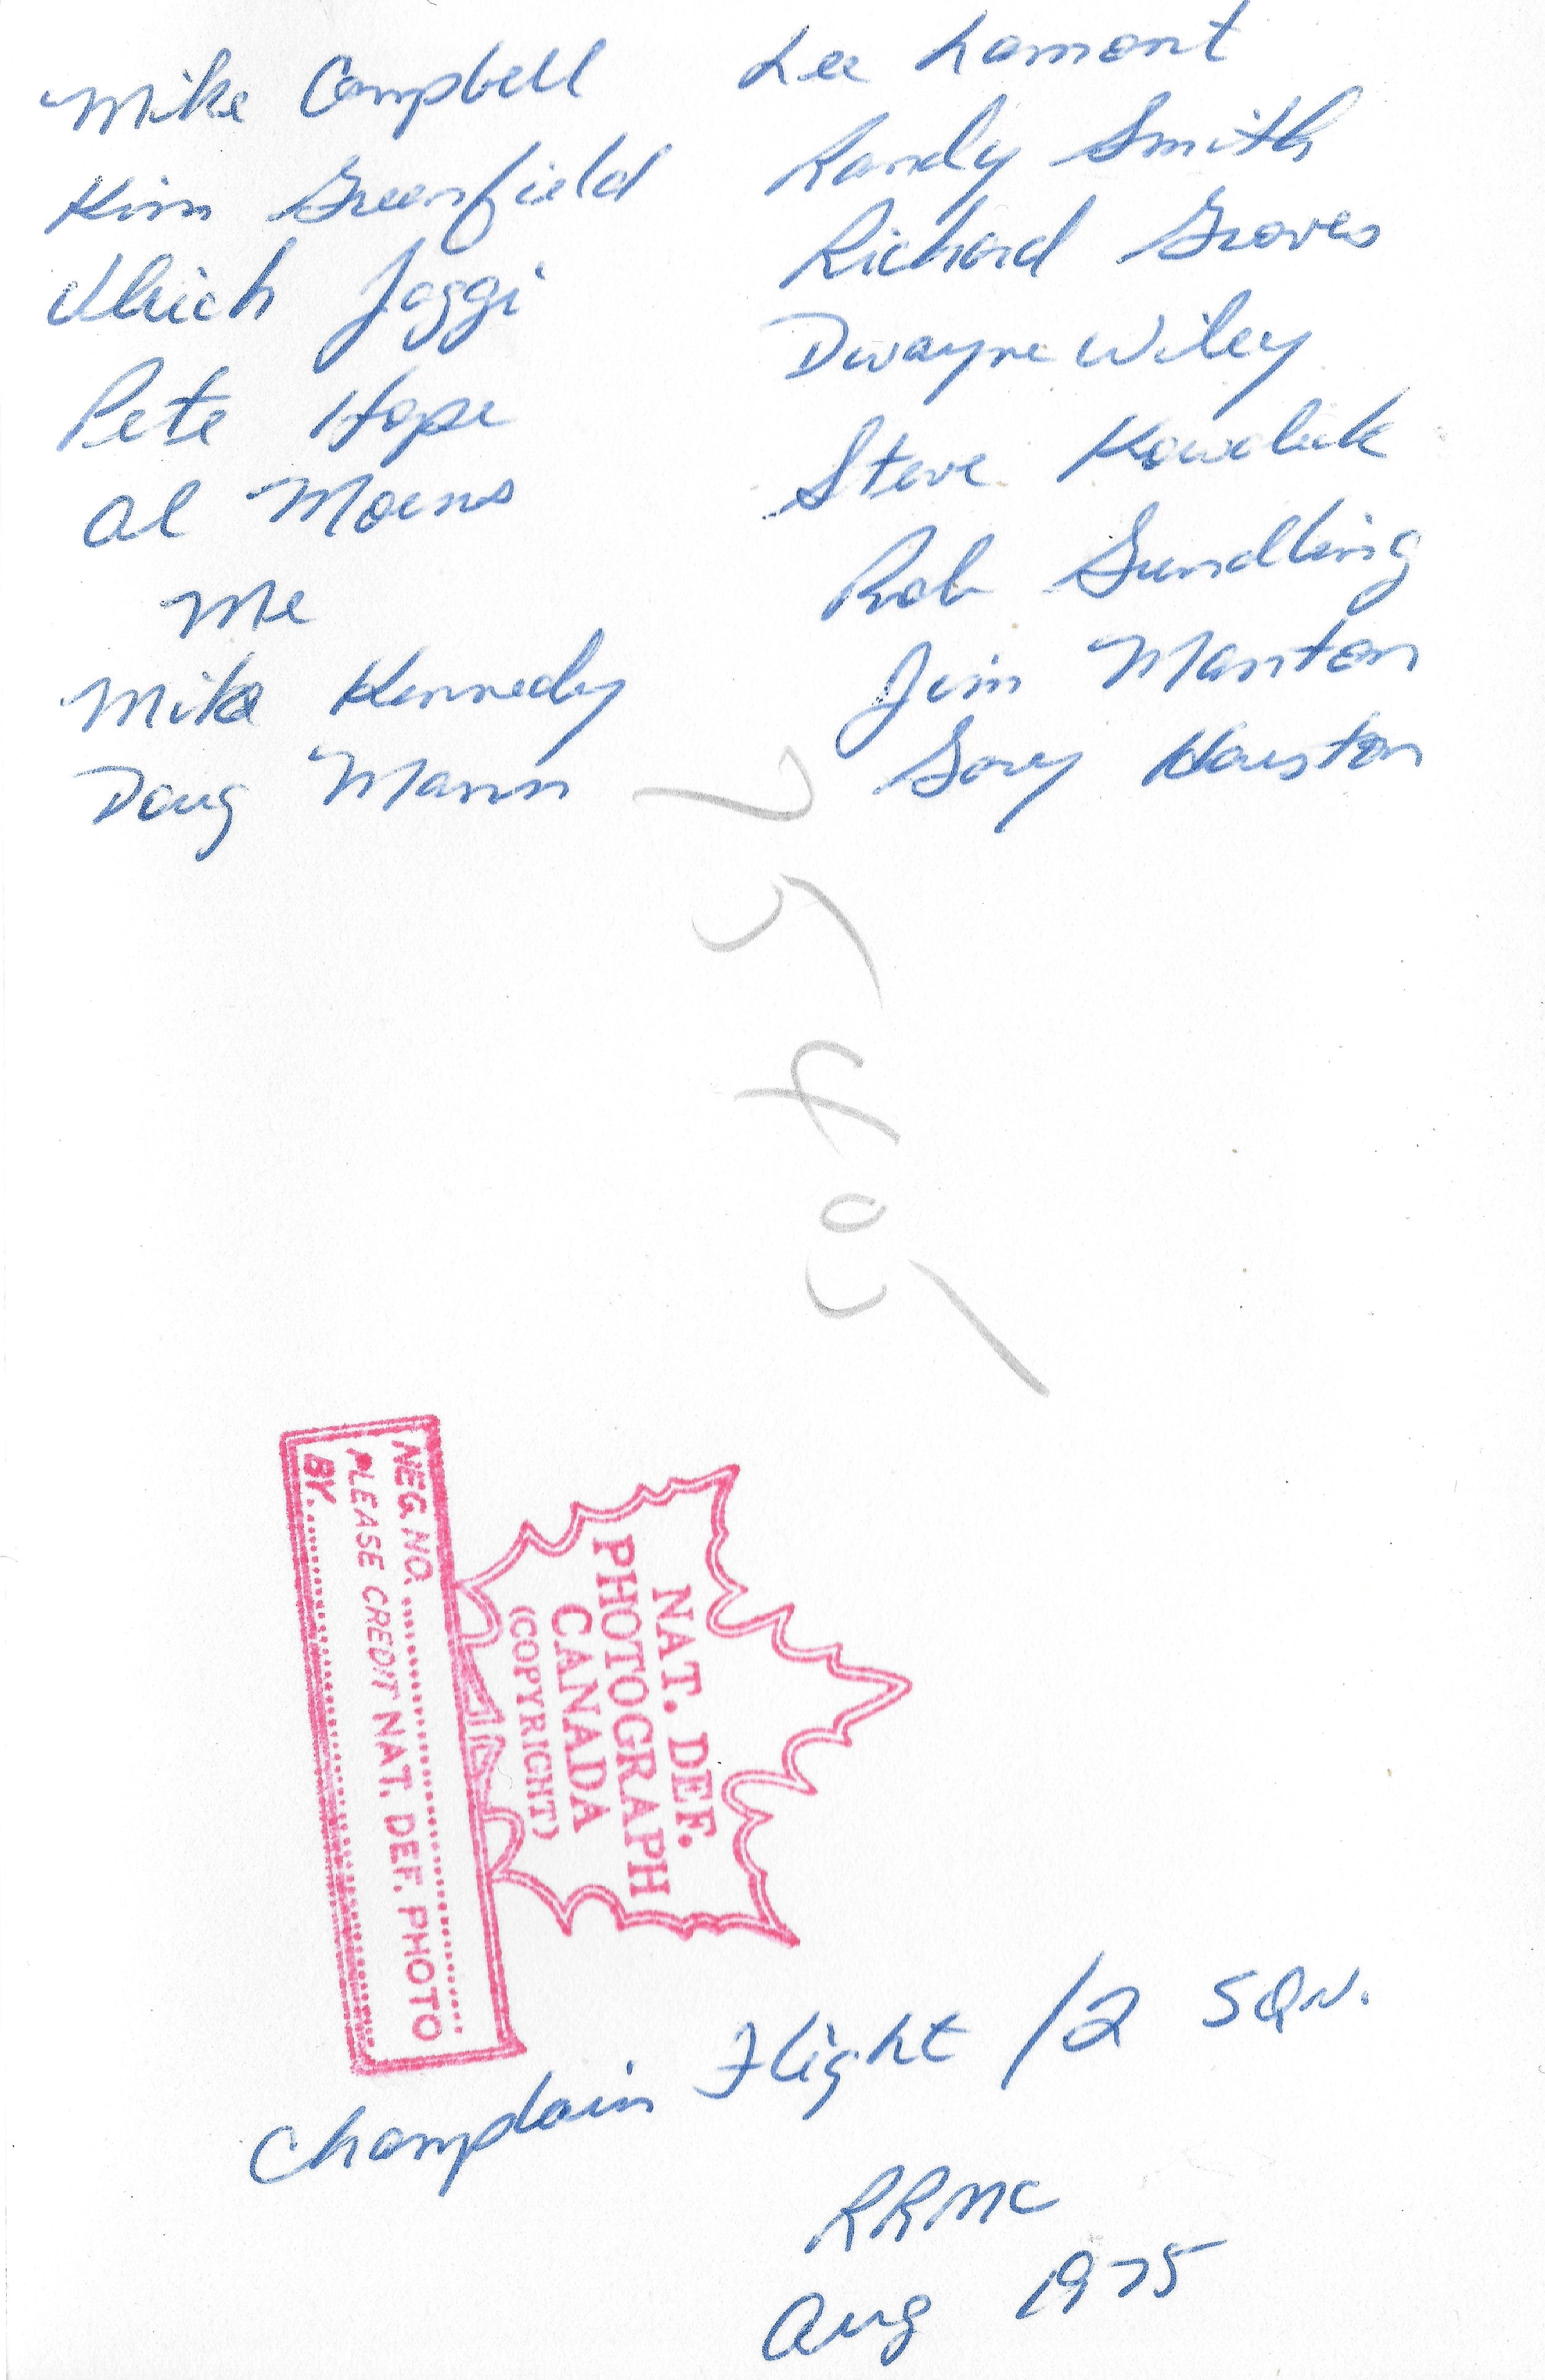 Mike Campbell
Kim Greenfield
Ulrich Jaggi
Pete Hope
Al Moens
Me
Mike Kennedy
Doug Mann
Lee Lamont
Randy Smith
Richard Groves
Dwayne Wiley
Steve
Rob Sundling
Jim Manton
Houston
NAT. DEF.
PHOTOGRAPH
CANADA
(COPYRIGHT)
NEG. NO.
PLEASE CREDIT NAT. DEF. PHOTO
BY
Champlain Flight /2 SQN.
RRMC
Aug 1975